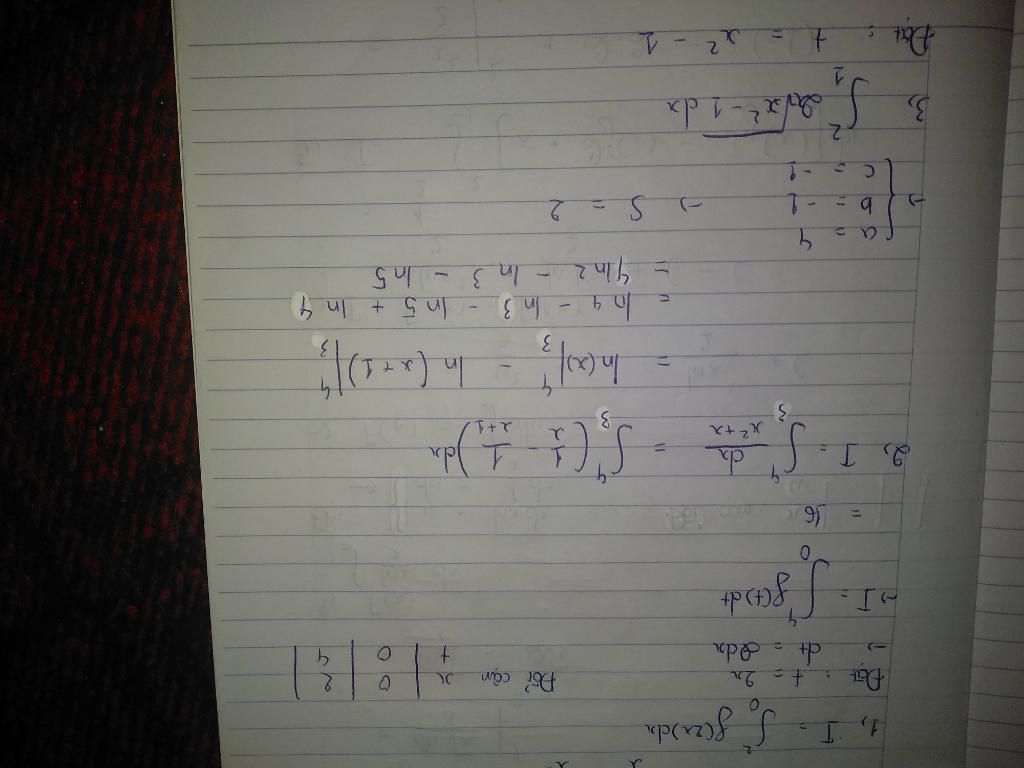 1, I = ∫₀² f(2x)dx
Đặt : t = 2x Đổi cận x | 0 | 2 |
→ dt = 2dx t | 0 | 4 |
→ I = ∫₀⁴ f(t)dt
= 16
2, I = ∫₃⁴ dx/(x²+x) = ∫₃⁴ (1/x - 1/(x+1))dx
= ln(x)|₃⁴ - ln(x+1)|₃⁴
= ln 4 - ln 3 - ln 5 + ln 4
= 4ln2 - ln 3 - ln 5
→ { a = 4
b = -1 → S = 2
c = -1
3, ∫₁² 2x√(x² - 1) dx
Đặt : t = x² - 1